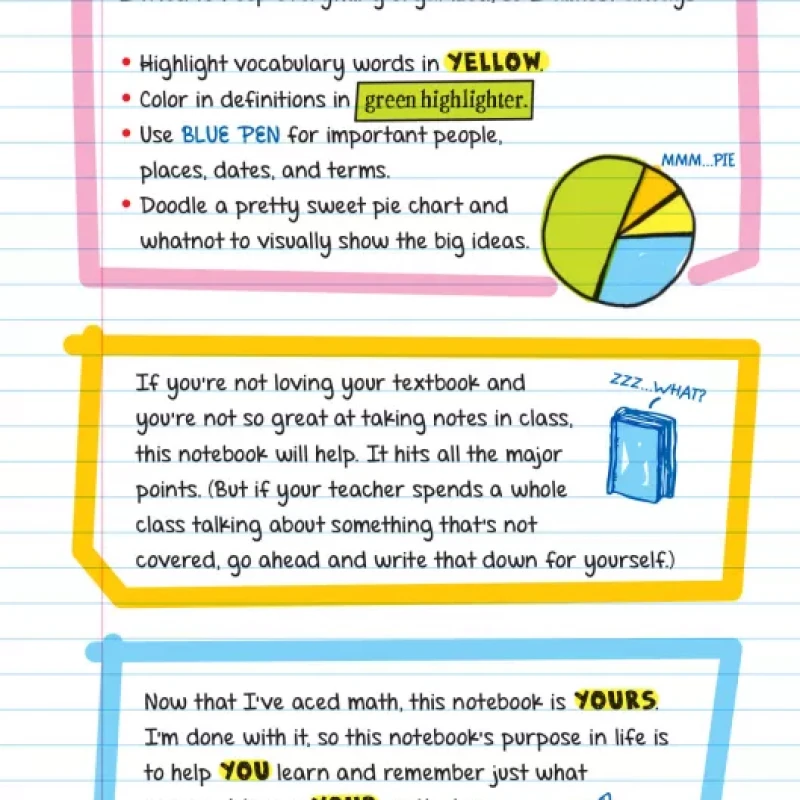 • Highlight vocabulary words in YELLOW.
• Color in definitions in green highlighter.
• Use BLUE PEN for important people,
places, dates, and terms.
MMM...PIE
• Doodle a pretty sweet pie chart and
whatnot to visually show the big ideas.
If you're not loving your textbook and
you're not so great at taking notes in class,
this notebook will help. It hits all the major
points. (But if your teacher spends a whole
class talking about something that's not
covered, go ahead and write that down for yourself.)
ZZZ...WHAT?
Now that I've aced math, this notebook is YOURS.
I'm done with it, so this notebook's purpose in life is
to help YOU learn and remember just what